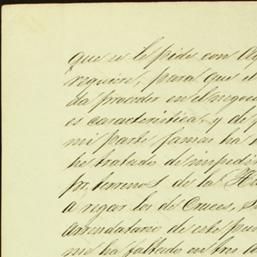 que se le pide con
requiere, para que el
da proceder en el negoc
es caracteristica, y de p
mi parte jamas ha
he tratado de impedi
por terreno de la Ha
a regar los de Cruces, S
Arrendatario de este pu
me ha faltado en tres